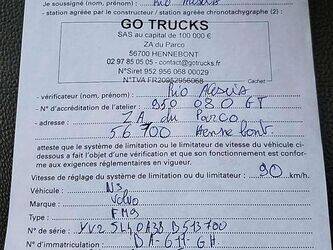 Je soussigné (nom, prénom) :
- station agréée par le constructeur / station agréée chronotachygraphe (2) :
GO TRUCKS
SAS au capital de 100 000 €
ZA du Parco
56700 HENNEBONT
02 97 85 05 05 - contact@gotrucks.fr
N°Siret 952 956 068 00029
N°TVA FR20952956068
Cachet
- vérificateur (nom, prénom) :
- N° d'accréditation de l'atelier : 950 080 GT
- adresse : ZA du PARCO
56 700 Hennebont.
atteste que le système de limitation ou le limitateur de vitesse du véhicule ci-
dessous a fait l'objet d'une vérification et que son fonctionnement est confor-
me aux exigences réglementaires en vigueur.
Vitesse de réglage du système de limitation ou du limitateur : 90 km/h.
Véhicule : N3
Marque : Volvo
Type : FM9
N° de série : YV2 5L40A3B D513700
N° d'immatriculation : DA-611-GH